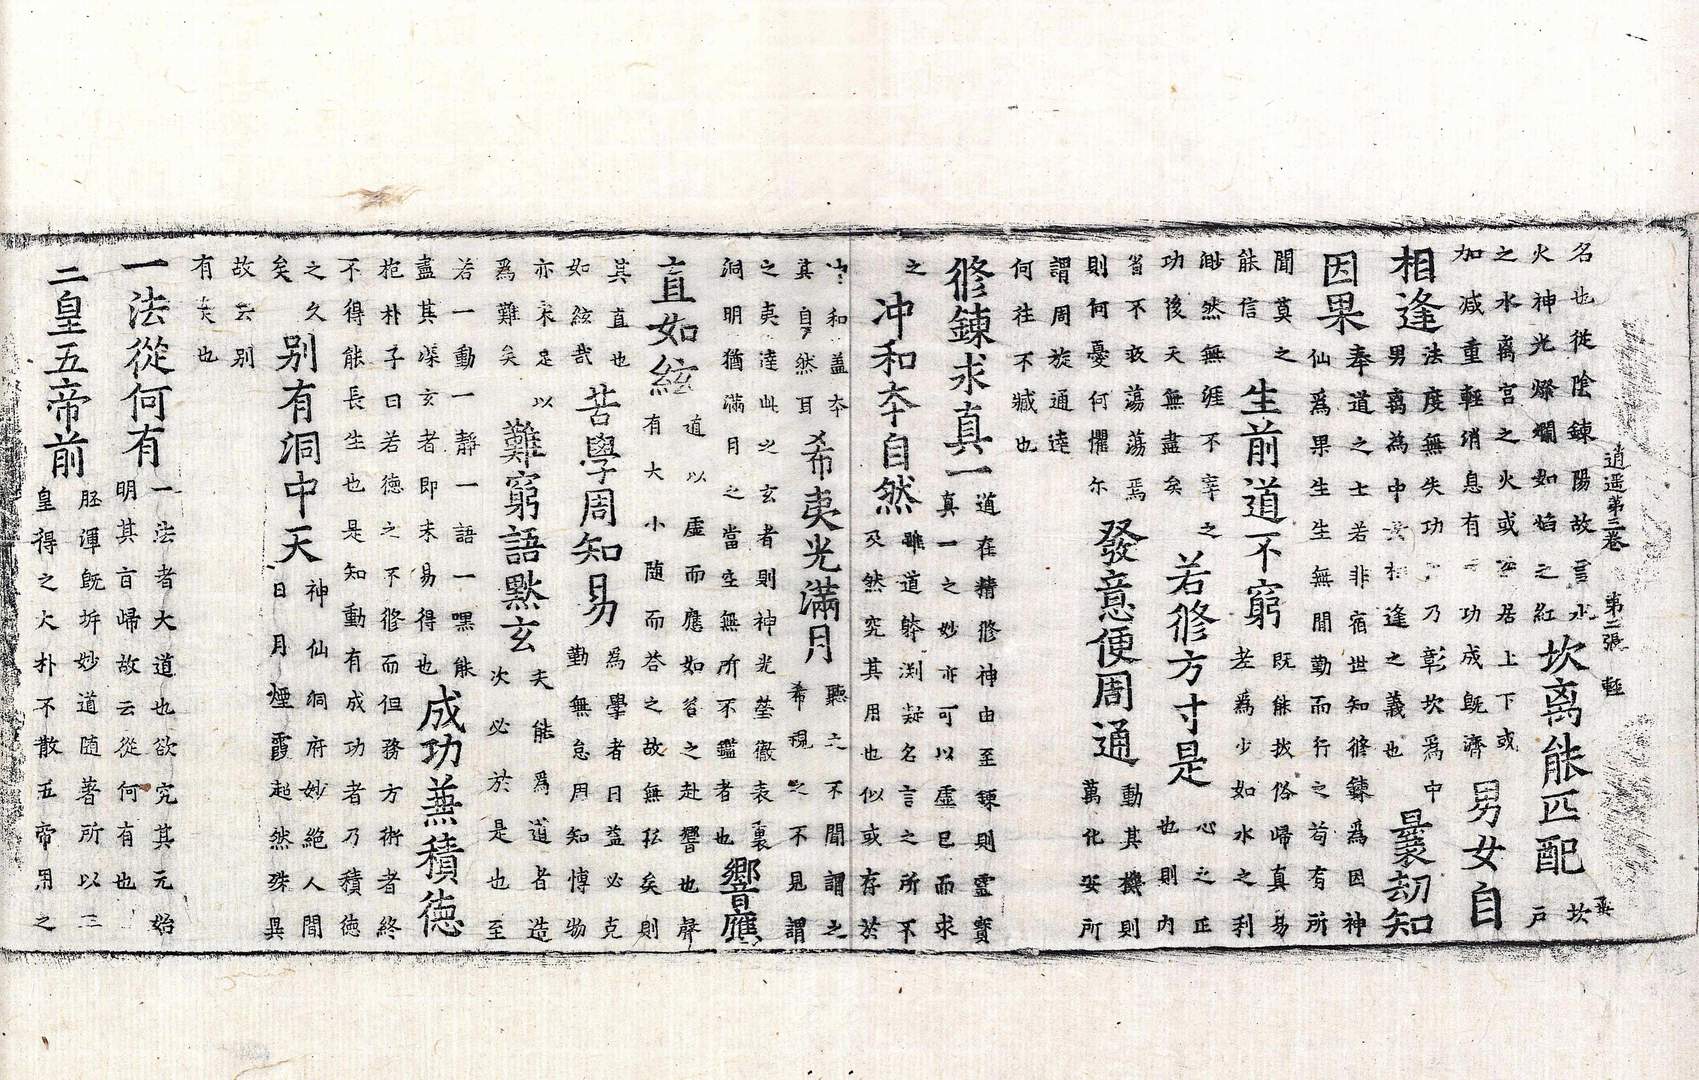 逍遥第三卷　第二張　輕
名也從陰鍊陽故言水
火神光燦爛如焰之紅
坎离能匹配
坎
戶
之水离宮之火或居上下或
加減重輕消息有功成既濟
男女自
相逢
法度無失功乃彰坎爲中
男离為中女相逢之義也
曩劫知
因果
奉道之士若非宿世知修鍊爲因神
仙爲果生生無間勤而行之苟有所
聞莫之
能信
生前道不窮
既能拔俗歸真易
老爲少如水之利
渺然無涯不宰之
功後天無盡矣
若修方寸是
心之正
也則內
省不疚蕩蕩焉
則何憂何懼尔
發意便周通
動其機則
萬化安所
謂周旋通達
何往不臧也
修鍊求真一
道在精修神由至鍊則靈寳
真一之妙亦可以虛已而求
之
冲和夲自然
雖道躰渊凝名言之所不
及然究其用也似或存於
和盖夲
其自然耳
希夷光滿月
聽之不聞謂之
希視之不見謂
之夷達此之玄者則神光瑩徹表裏
洞明猶滿月之當空無所不鑑者也
響應
直如絃
道以虛而應如谷之赴響也聲
有大小随而荅之故無私矣則
其直也
如絃哉
苦學周知易
為學者日益必克
勤無怠用知博物
亦未足以
爲難矣
難窮語黙玄
夫能爲道者造
次必於是也至
若一動一靜一語一嘿能
盡其深玄者即未易得也
成功兼積徳
抱朴子曰若德之不修而但務方術者終
不得能長生也是知動有成功者乃積徳
之久
矣
别有洞中天
神仙洞府妙絶人間
日月煙霞起然殊異
故云别
有天也
一法從何有
一法者大道也欲究其元始
明其旨歸故云從何有也
二皇五帝前
胚渾既坼妙道随著所以三
皇得之大朴不散五帝用之